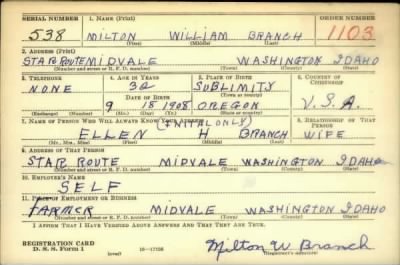 SERIAL NUMBER 1. NAME (Print) ORDER NUMBER
538 MILTON WILLIAM BRANCH 1103
(First) (Middle) (Last)
2. ADDRESS (Print)
STAR ROUTE MIDVALE WASHINGTON IDAHO
(Number and street or R. F. D. number) (Town) (County) (State)
3. TELEPHONE 4. AGE IN YEARS 5. PLACE OF BIRTH 6. COUNTRY OF CITIZENSHIP
NONE 32 SUBLIMITY
DATE OF BIRTH (Town or county)
9 18 1908 OREGON U.S.A.
(Mo.) (Day) (Yr.) (State or country)
7. NAME OF PERSON WHO WILL ALWAYS KNOW YOUR ADDRESS (INITAL ONLY) 8. RELATIONSHIP OF THAT PERSON
ELLEN H BRANCH WIFE
(Mr., Mrs., Miss) (First) (Middle) (Last)
9. ADDRESS OF THAT PERSON
STAR ROUTE MIDVALE WASHINGTON IDAHO
(Number and street or R. F. D. number) (Town) (County) (State)
10. EMPLOYER'S NAME
SELF
11. PLACE OF EMPLOYMENT OR BUSINESS
FARMER MIDVALE WASHINGTON IDAHO
(Number and street or R. F. D. number) (Town) (County) (State)
I AFFIRM THAT I HAVE VERIFIED ABOVE ANSWERS AND THAT THEY ARE TRUE.
REGISTRATION CARD
D. S. S. Form 1 16—17105 Milton W Branch
(Registrant's signature)